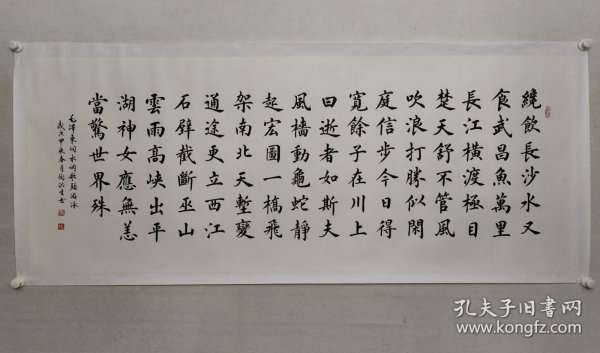 纔飲長沙水又
食武昌魚萬里
長江橫渡極目
楚天舒不管風
吹浪打勝似閑
庭信步今日得
寬餘子在川上
曰逝者如斯夫
風檣動龜蛇靜
起宏圖一橋飛
架南北天塹變
通途更立西江
石壁截斷巫山
雲雨高峽出平
湖神女應無恙
當驚世界殊
毛澤東詞水調歌頭游泳
孔夫子旧书网
www.kongfz.com